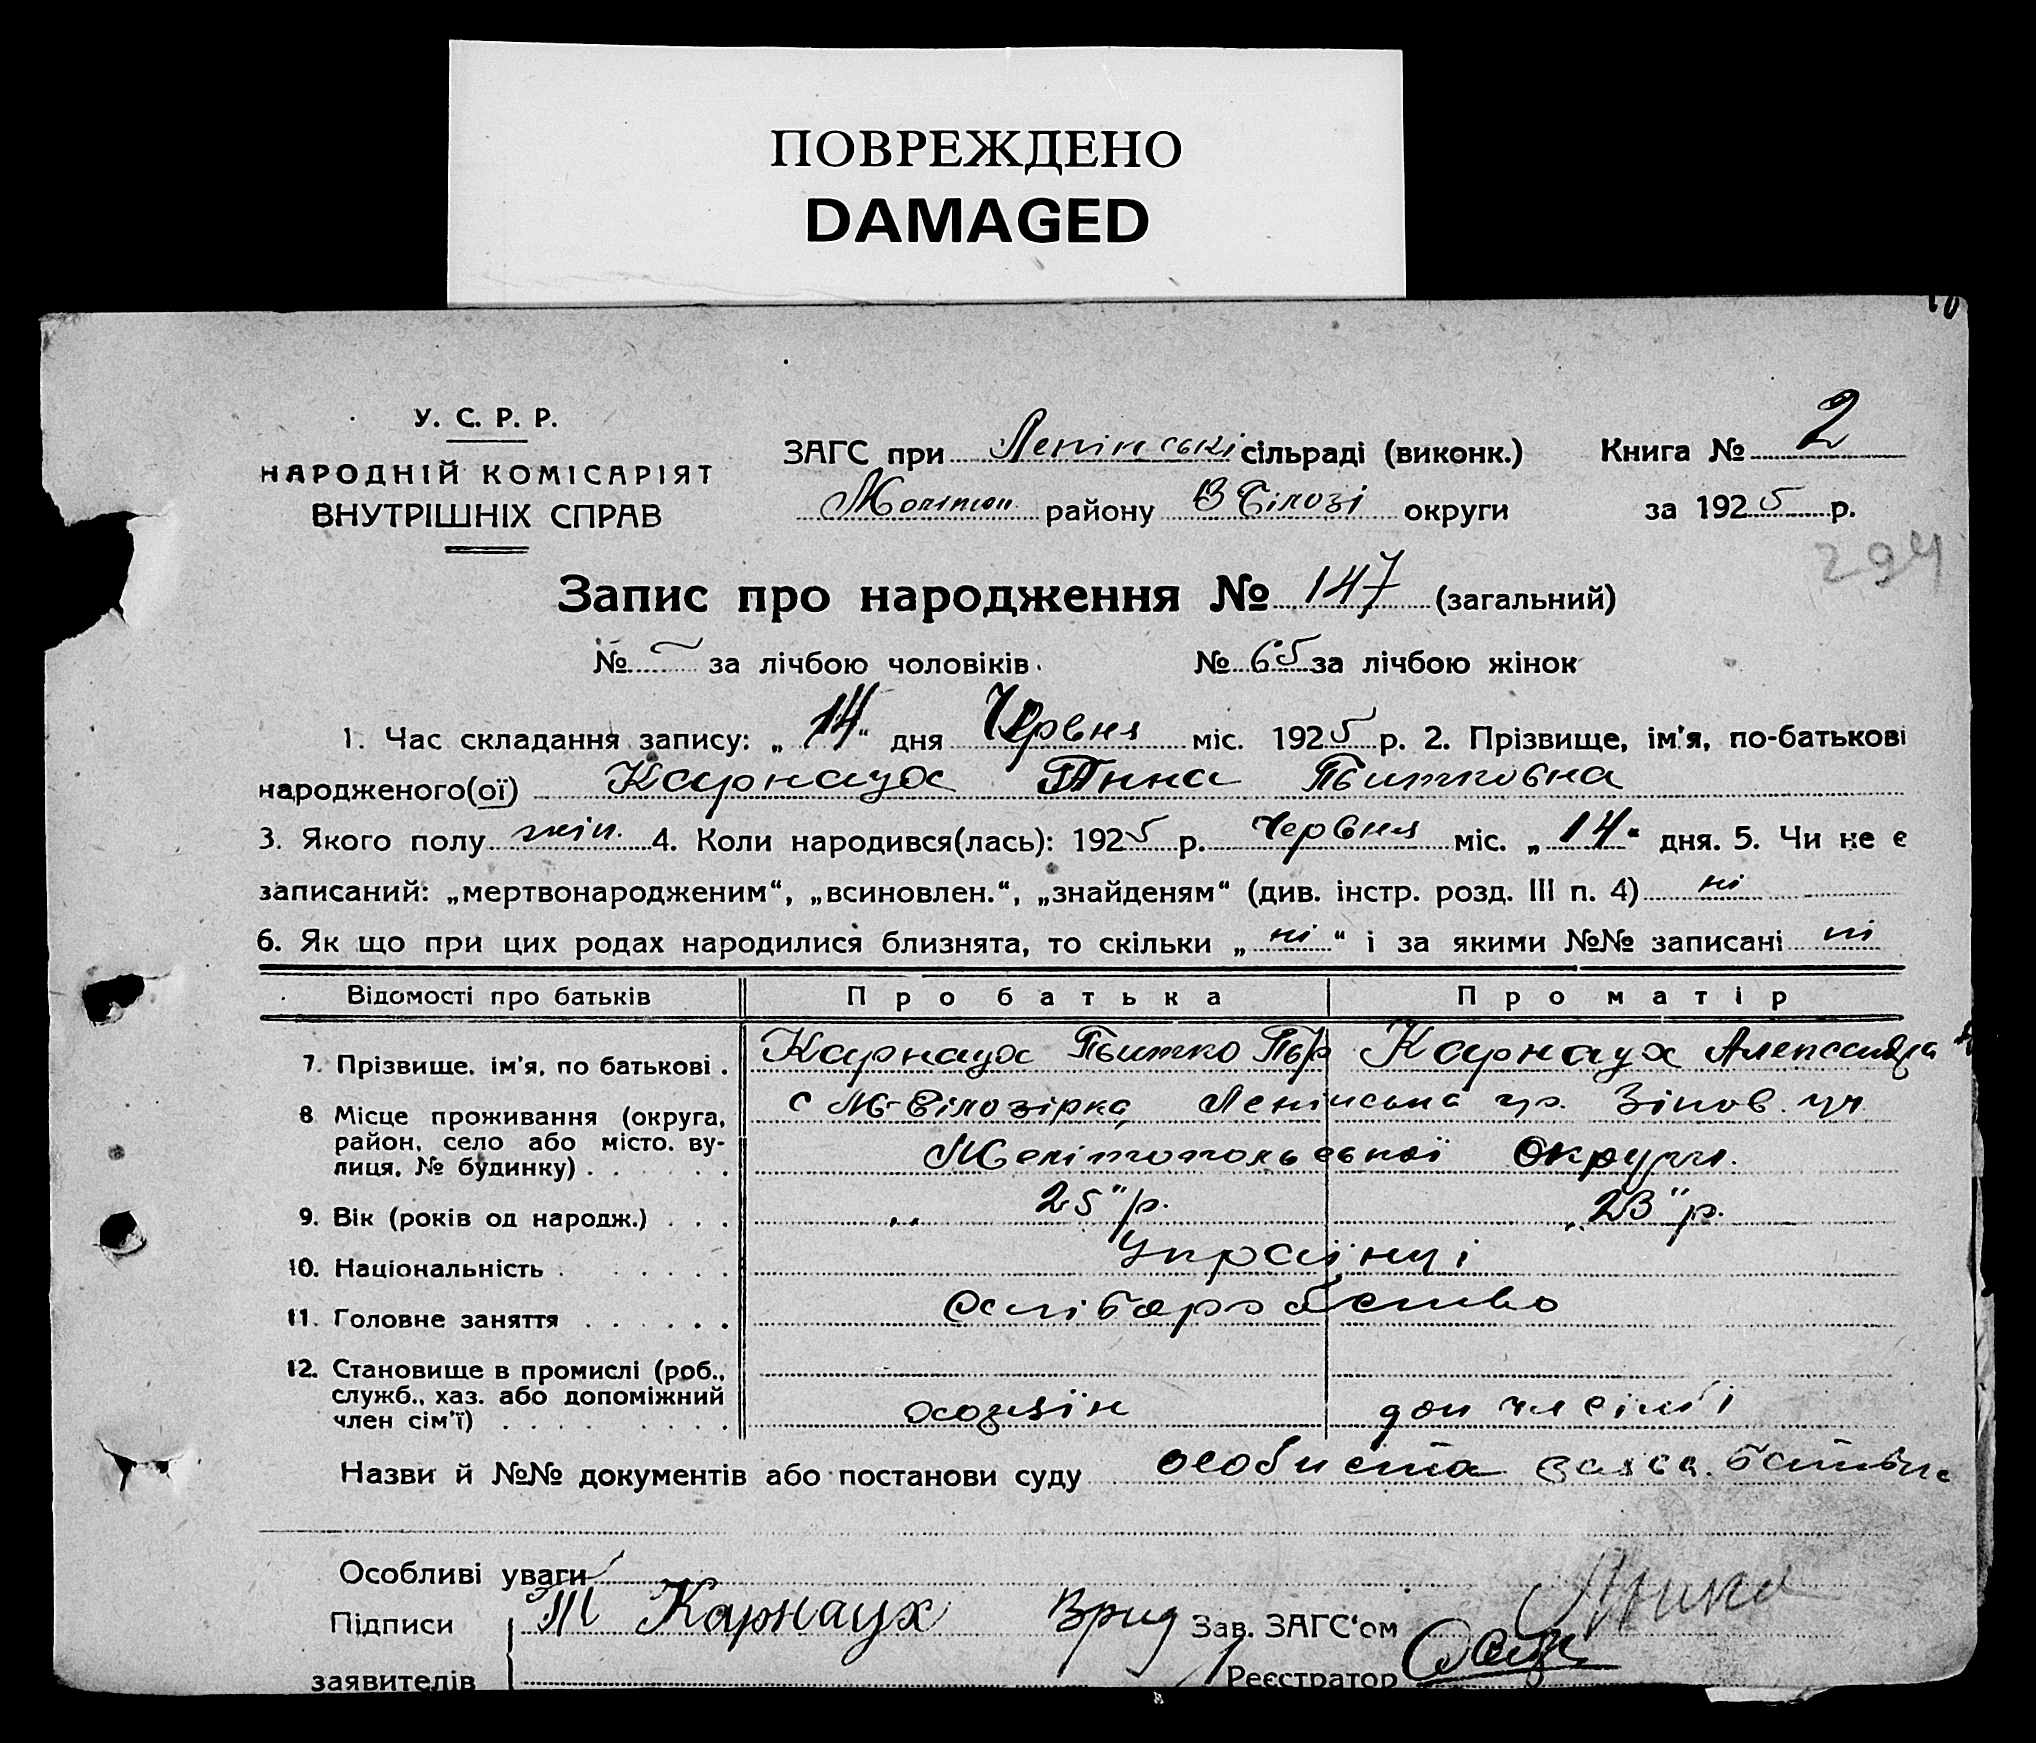 ПОВРЕЖДЕНО
DAMAGED
У. С. Р. Р.
НАРОДНІЙ КОМІСАРІЯТ
ВНУТРІШНІХ СПРАВ
ЗАГС при Ленінські сільраді (виконк.)
Мелітоп. району В Білозі округи
Книга № 2
за 1925 р.
294
Запис про народження № 147 (загальний)
№ за лічбою чоловіків. № 65 за лічбою жінок
1. Час складання запису: „14“ дня Червня міс. 1925 р. 2. Прізвище, ім'я, по-батькові
народженого(ої) Карнаух Анна
3. Якого полу жін. 4. Коли народився(лась): 1925 р. Червня міс. „14“ дня. 5. Чи не є
записаний: „мертвонародженим“, „всиновлен.“, „знайденям“ (див. інстр. розд. III п. 4) ні
6. Як що при цих родах народилися близнята, то скільки „ні“ і за якими №№ записані ні
Відомості про батьків Про батька Про матір
7. Прізвище, ім'я, по батькові . Карнаух Карнаух Александра
8 Місце проживання (округа, с М-Білозірка Ленінська Зінов.
район, село або місто, ву-
лиця, № будинку) . . . . Мелітопольської округи.
9. Вік (років од народж.) . . . 25 р. 23 р.
10. Національність . . . . . . Українці
11. Головне заняття . . . . . .
12. Становище в промислі (роб.,
служб., хаз. або допоміжний
член сім'ї) . . . . . . . хозяїн доп чл сімьі
Назви й №№ документів або постанови суду особиста заява
Особливі уваги
Підписи Т Карнаух Врид Зав. ЗАГС'ом
заявителів Реєстратор